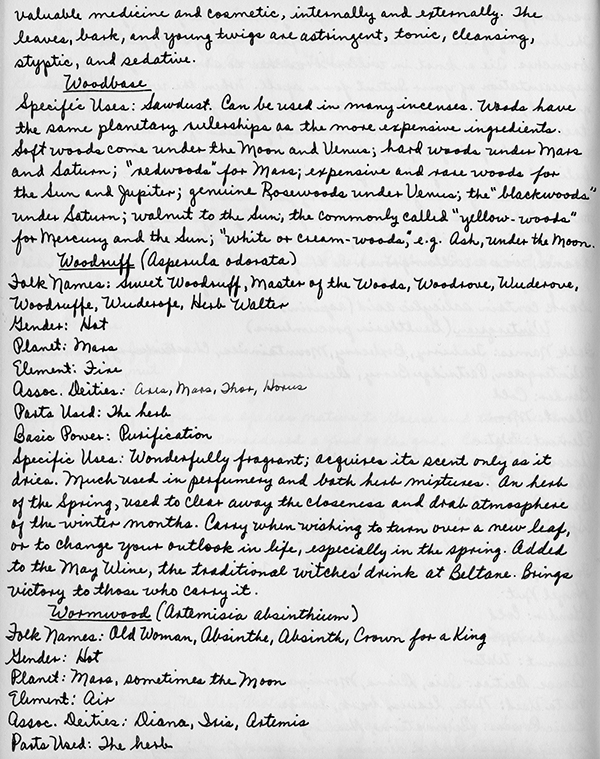 valuable medicine and cosmetic, internally and externally. The
leaves, bark, and young twigs are astringent, tonic, cleansing,
styptic, and sedative.
Woodbase
Specific Uses: Sawdust. Can be used in many incenses. Woods have
the same planetary rulerships as the more expensive ingredients.
Soft woods come under the Moon and Venus; hard woods under Mars
and Saturn; "redwoods" for Mars; expensive and rare woods for
the Sun and Jupiter; genuine Rosewoods under Venus; the "blackwoods"
under Saturn; walnut to the Sun; the commonly called "yellow-woods"
for Mercury and the Sun; "white or cream-woods," e.g. Ash, under the Moon.
Woodruff (Asperula odorata)
Folk Names: Sweet Woodruff, Master of the Woods, Woodrove, Wuderove,
Woodruffe, Wuderofe, Herb Walter
Gender: Hot
Planet: Mars
Element: Fire
Assoc. Deities: Ares, Mars, Thor, Horus
Parts Used: The herb
Basic Power: Purification
Specific Uses: Wonderfully fragrant; acquires its scent only as it
dries. Much used in perfumery and bath herb mixtures. An herb
of the Spring, used to clear away the closeness and drab atmosphere
of the winter months. Carry when wishing to turn over a new leaf,
or to change your outlook in life, especially in the spring. Added
to the May Wine, the traditional witches' drink at Beltane. Brings
victory to those who carry it.
Wormwood (Artemisia absinthium)
Folk Names: Old Woman, Absinthe, Absinth, Crown for a King
Gender: Hot
Planet: Mars, sometimes the Moon
Element: Air
Assoc. Deities: Diana, Iris, Artemis
Parts Used: The herb